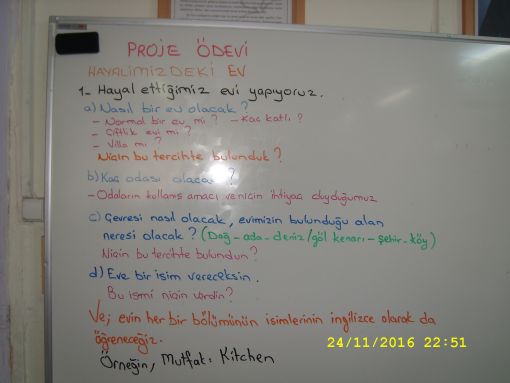 PROJE ÖDEVİ
HAYALİMİZDEKİ EV
1- Hayal ettiğimiz evi yapıyoruz.
a) Nasıl bir ev olacak?
- Normal bir ev mi? - Kaç katlı?
- Çiftlik evi mi?
- Villa mı?
Niçin bu tercihte bulunduk?
b) Kaç odası olacak?
- Odaların kullanış amacı ve niçin ihtiyaç duyduğumuz
c) Çevresi nasıl olacak, evimizin bulunduğu alan
neresi olacak? (Dağ - ada - deniz/göl kenarı - şehir - köy)
Niçin bu tercihte bulundun?
d) Eve bir isim vereceksin.
Bu ismi niçin verdin?
Ve; evin her bir bölümünün isimlerinin ingilizce olarak da
öğreneceğiz.
Örneğin, Mutfak: Kitchen
24/11/2016 22:51